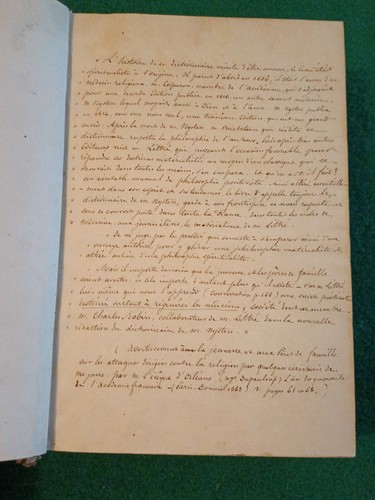 « L'histoire de ce dictionnaire mérite d'être connue. Le livre était
« spiritualiste à l'origine. Il parut d'abord en 1806, il était l'œuvre d'un
« médecin religieux, M. Capuron, membre de l'académie, qui s'adjoignit
« pour une seconde édition publiée en 1810, un autre savant médecin,
« M. Nysten lequel croyait aussi à Dieu et à l'âme. M. Nysten publia
« en 1814, sous son nom seul, une troisième édition qui eut un grand
« succès. Après la mort de M. Nysten, M. Bricheteau qui réédita ce
« dictionnaire, respecta la philosophie de l'auteur, puis après
« éditeurs vint M. Littré qui, trouvant l'occasion favorable pour
« répandre ses doctrines matérialistes, au moyen d'un classique, qui se
« trouvait dans toutes les mains, s'en empara. Et qu'en a-t-il fait ?
« Un véritable manuel de philosophie positiviste. Ainsi altéré essentielle-
« ment dans son esprit et sa substance, le livre s'appelle toujours le
« dictionnaire de M. Nysten, garde à son frontispice ce nom respecté, et
« sous ce couvert porte dans toute la France, dans toutes les écoles de
« médecine, aux jeunes élèves, le matérialisme de M. Littré.
« Je ne juge pas le procédé qui consiste à s'emparer ainsi d'un
« ouvrage autorisé, pour y glisser une philosophie matérialiste et
« athée au lieu d'une philosophie spiritualiste.
« Mais il importe du moins que la jeunesse et les pères de famille
« soient avertis ; il le importe d'autant plus qu'il existe, c'est M. Littré
« lui-même qui nous l'apprend (Conservation p. 288) une société positiviste
« destinée surtout à régénérer les médecins, société dont est membre
« M. Charles Robin, collaborateur de M. Littré dans la nouvelle
« rédaction du dictionnaire de M. Nysten. »
( Avertissement à la jeunesse et aux Pères de famille
sur les attaques dirigées contre la religion par quelques écrivains de
nos jours, par M. l'évêque d'Orléans (Mgr. Dupanloup) l'un des quarante
de l'académie française. (Paris. Douniol 1863) V. pages 67 et 68.